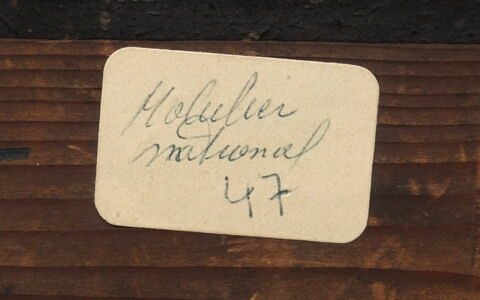 Mobilier
national
47